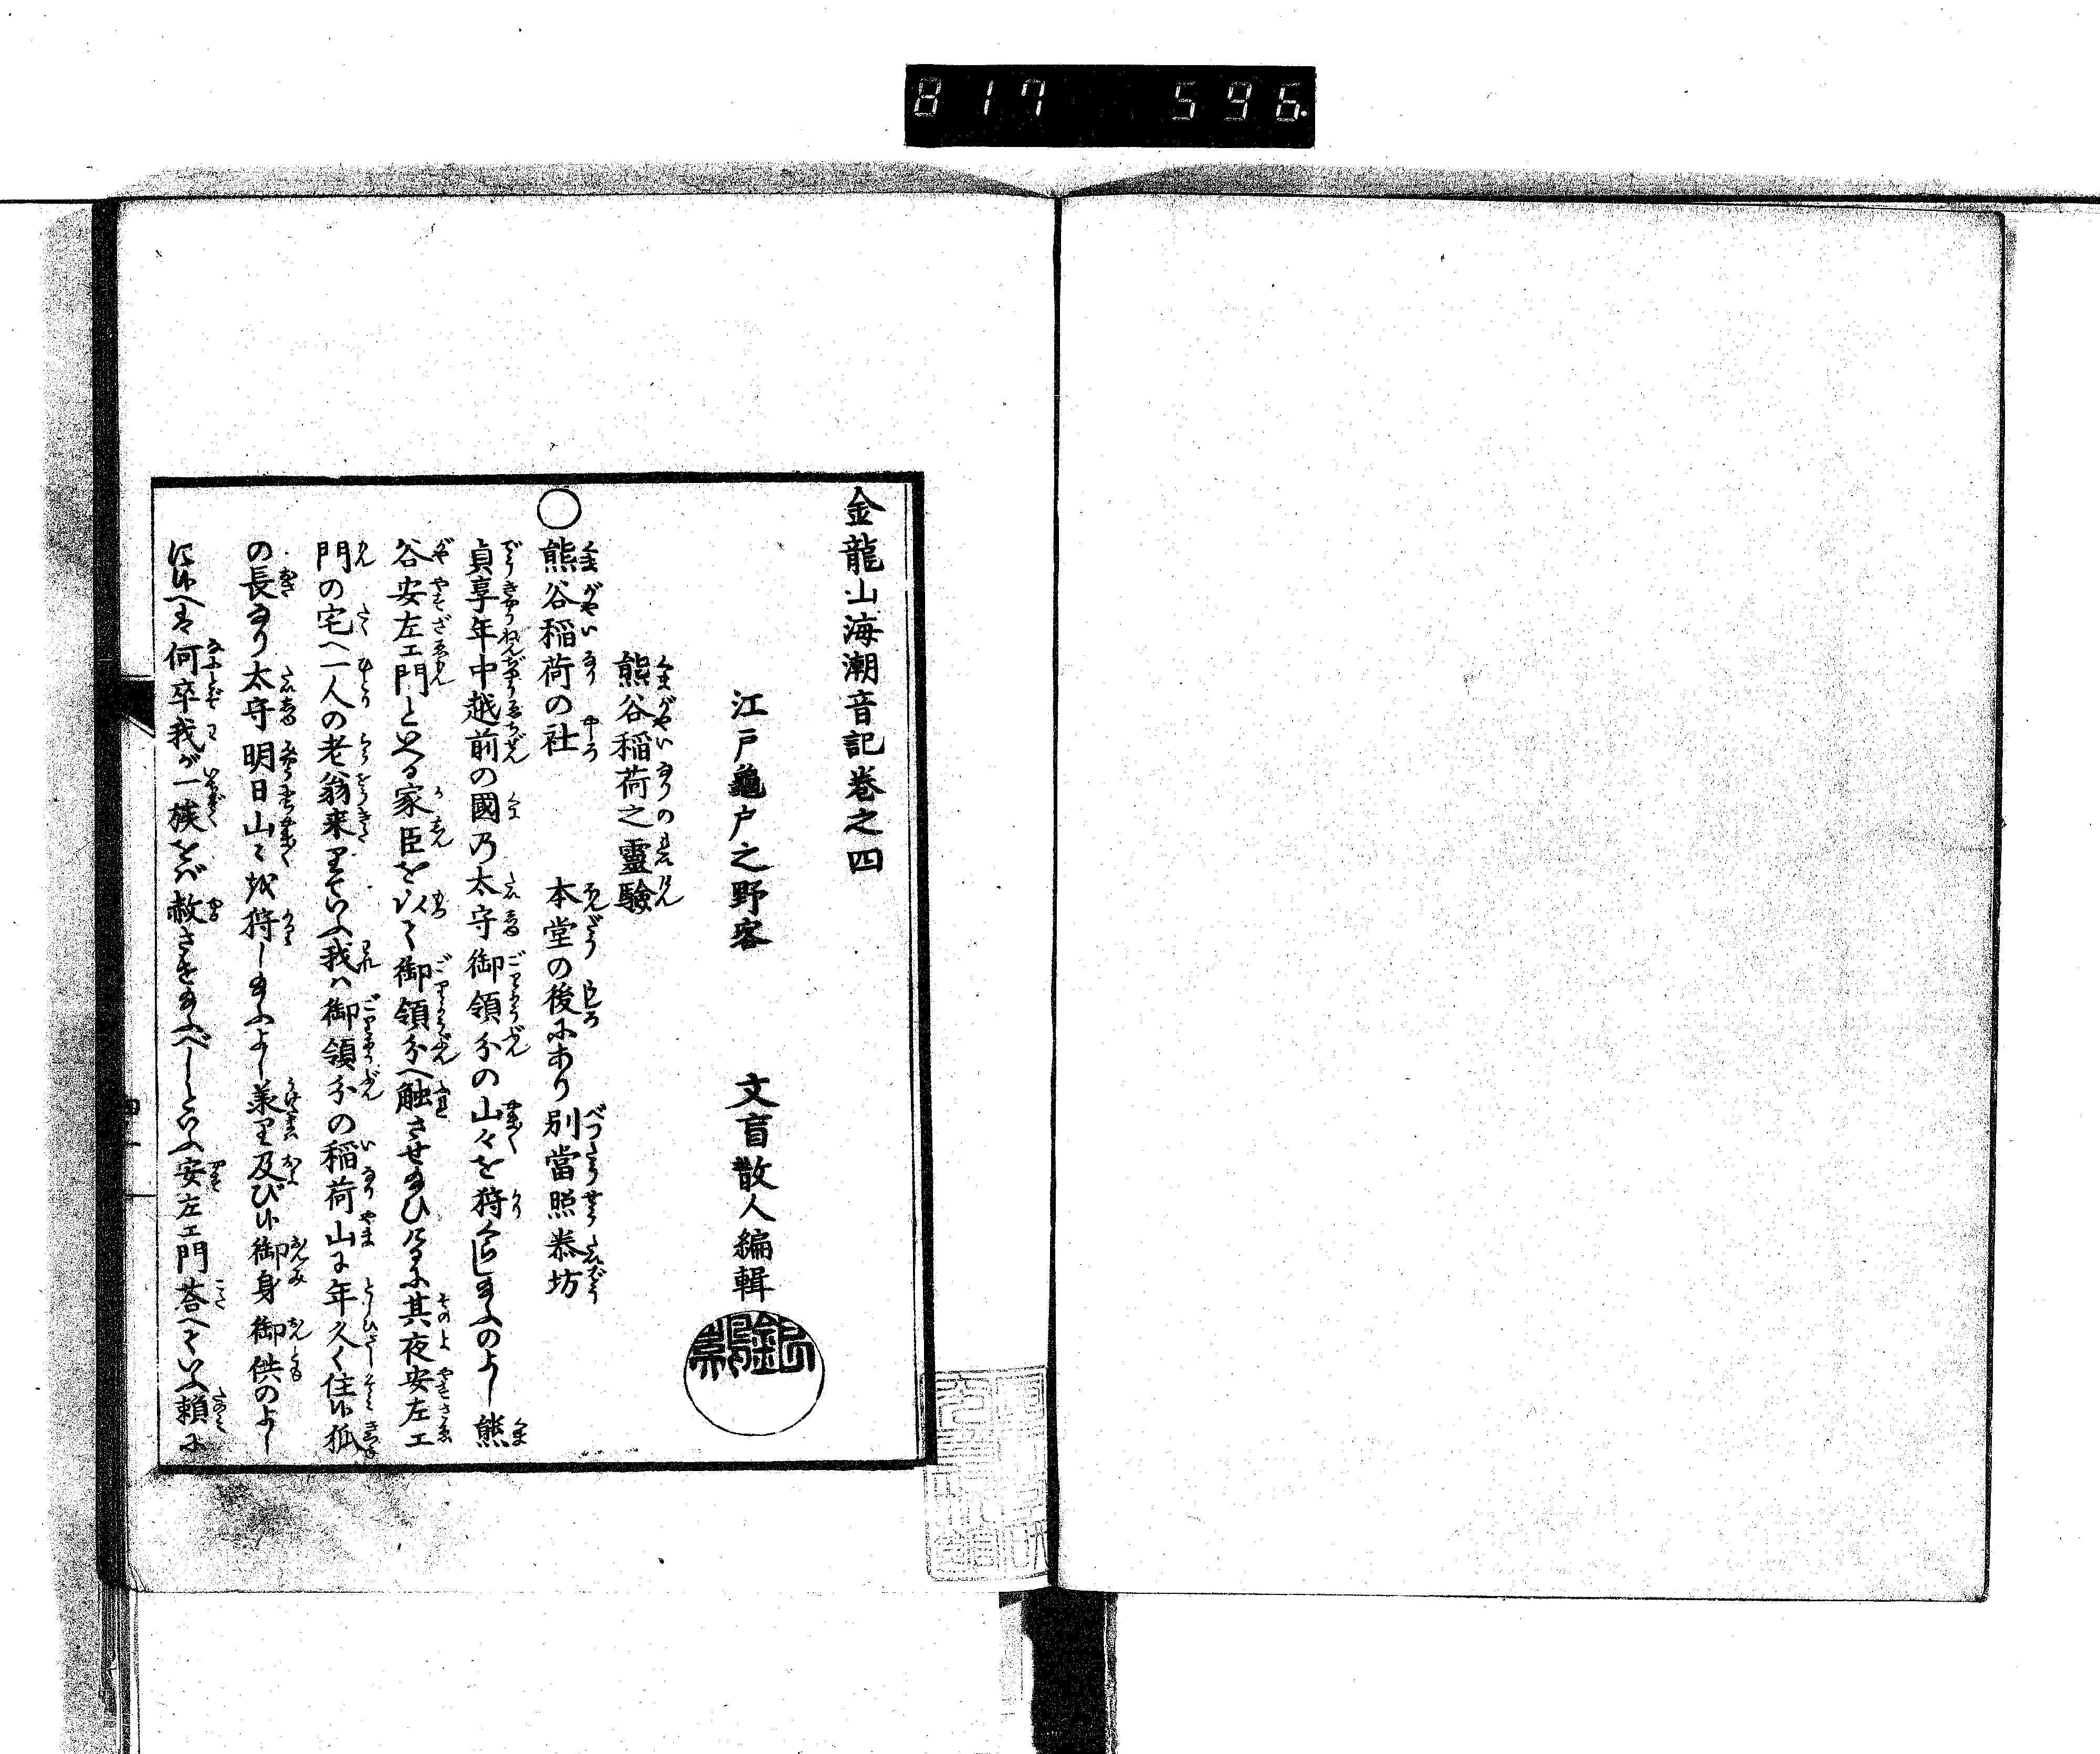 817 596.
金龍山海潮音記巻之四
江戸龜戸之野客 文盲散人編輯
熊谷稲荷之靈驗
○熊谷稲荷の社 本堂の後にあり別當照泰坊
貞享年中越前の國乃太守御領分の山々を狩くらし給ふのよし熊
谷安左エ門といへる家臣を以て御領分へ触させ給ひけるに其夜安左エ
門の宅へ一人の老翁来りていふ我ハ御領分の稲荷山に年久く住む狐
の長なり太守明日山々を狩し給ふよし承り及び御身御供のよし
何卒我が一族をば赦させ給ふべしといふ安左エ門荅へていふ頼に